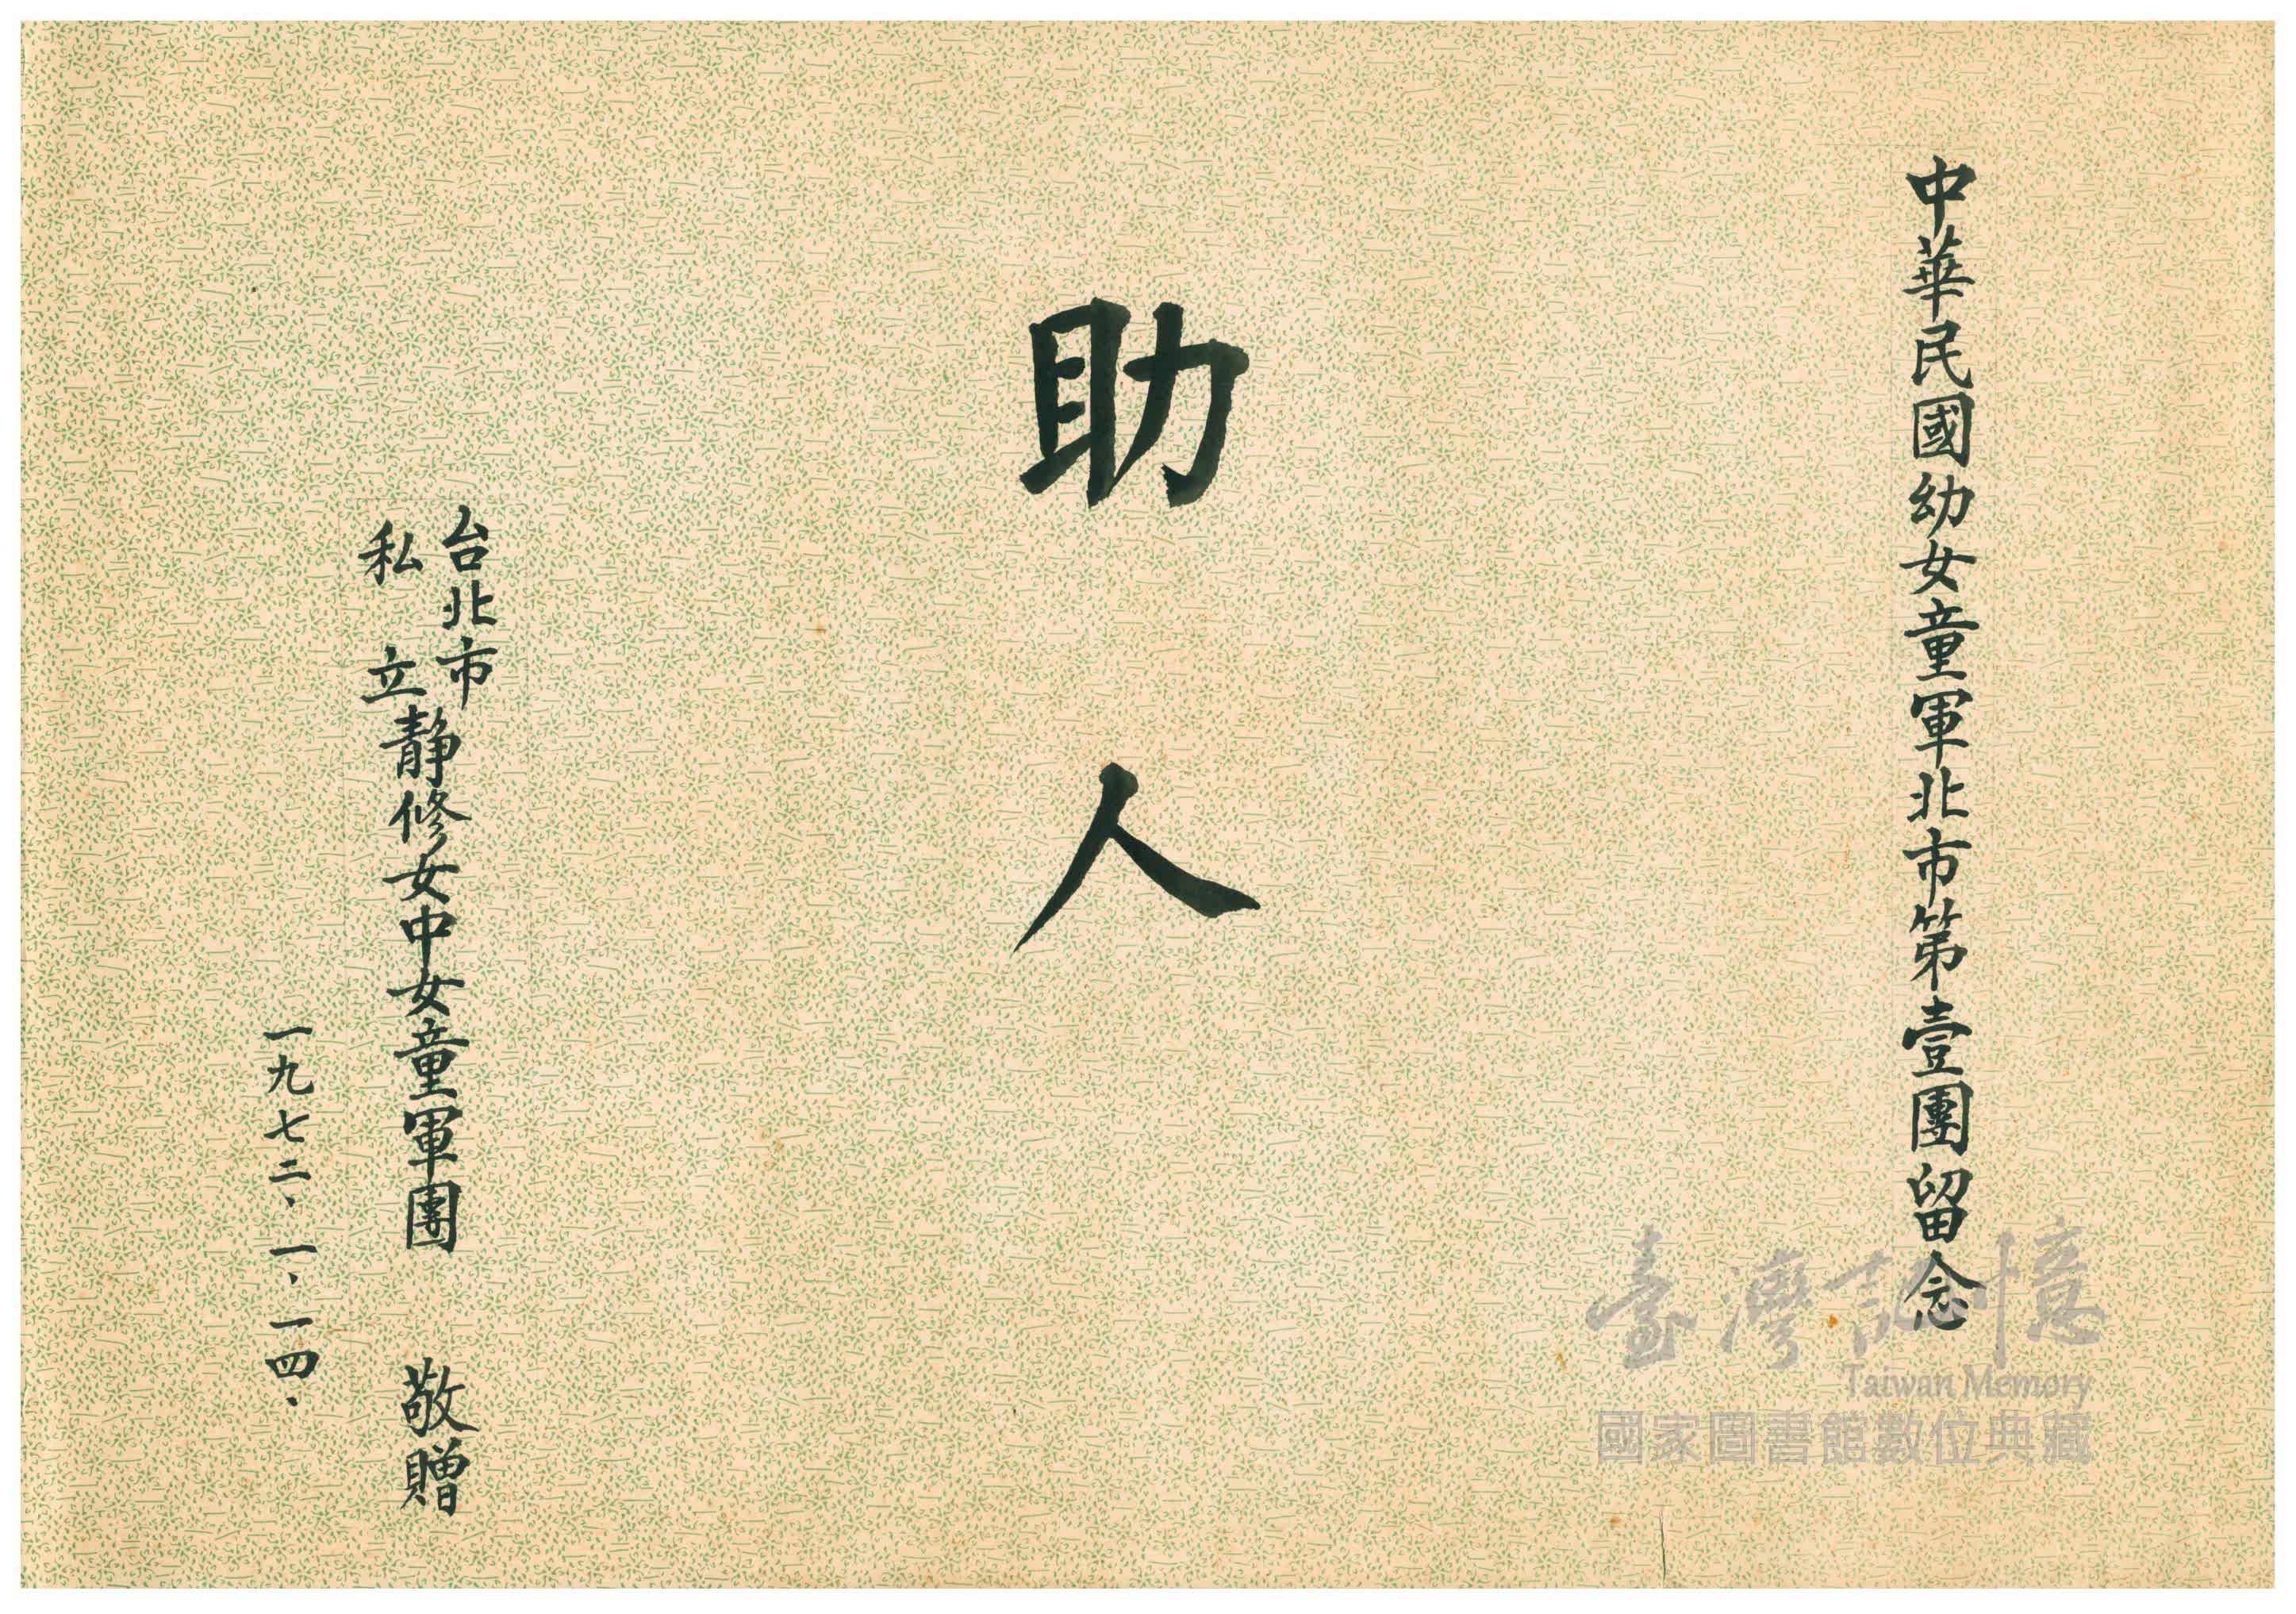 中華民國幼女童軍北市第壹團留念
助人
台北市
私立
靜修女中女童軍團 敬贈
一九七二、一、一四、
臺灣記憶
Taiwan Memory
國家圖書館數位典藏